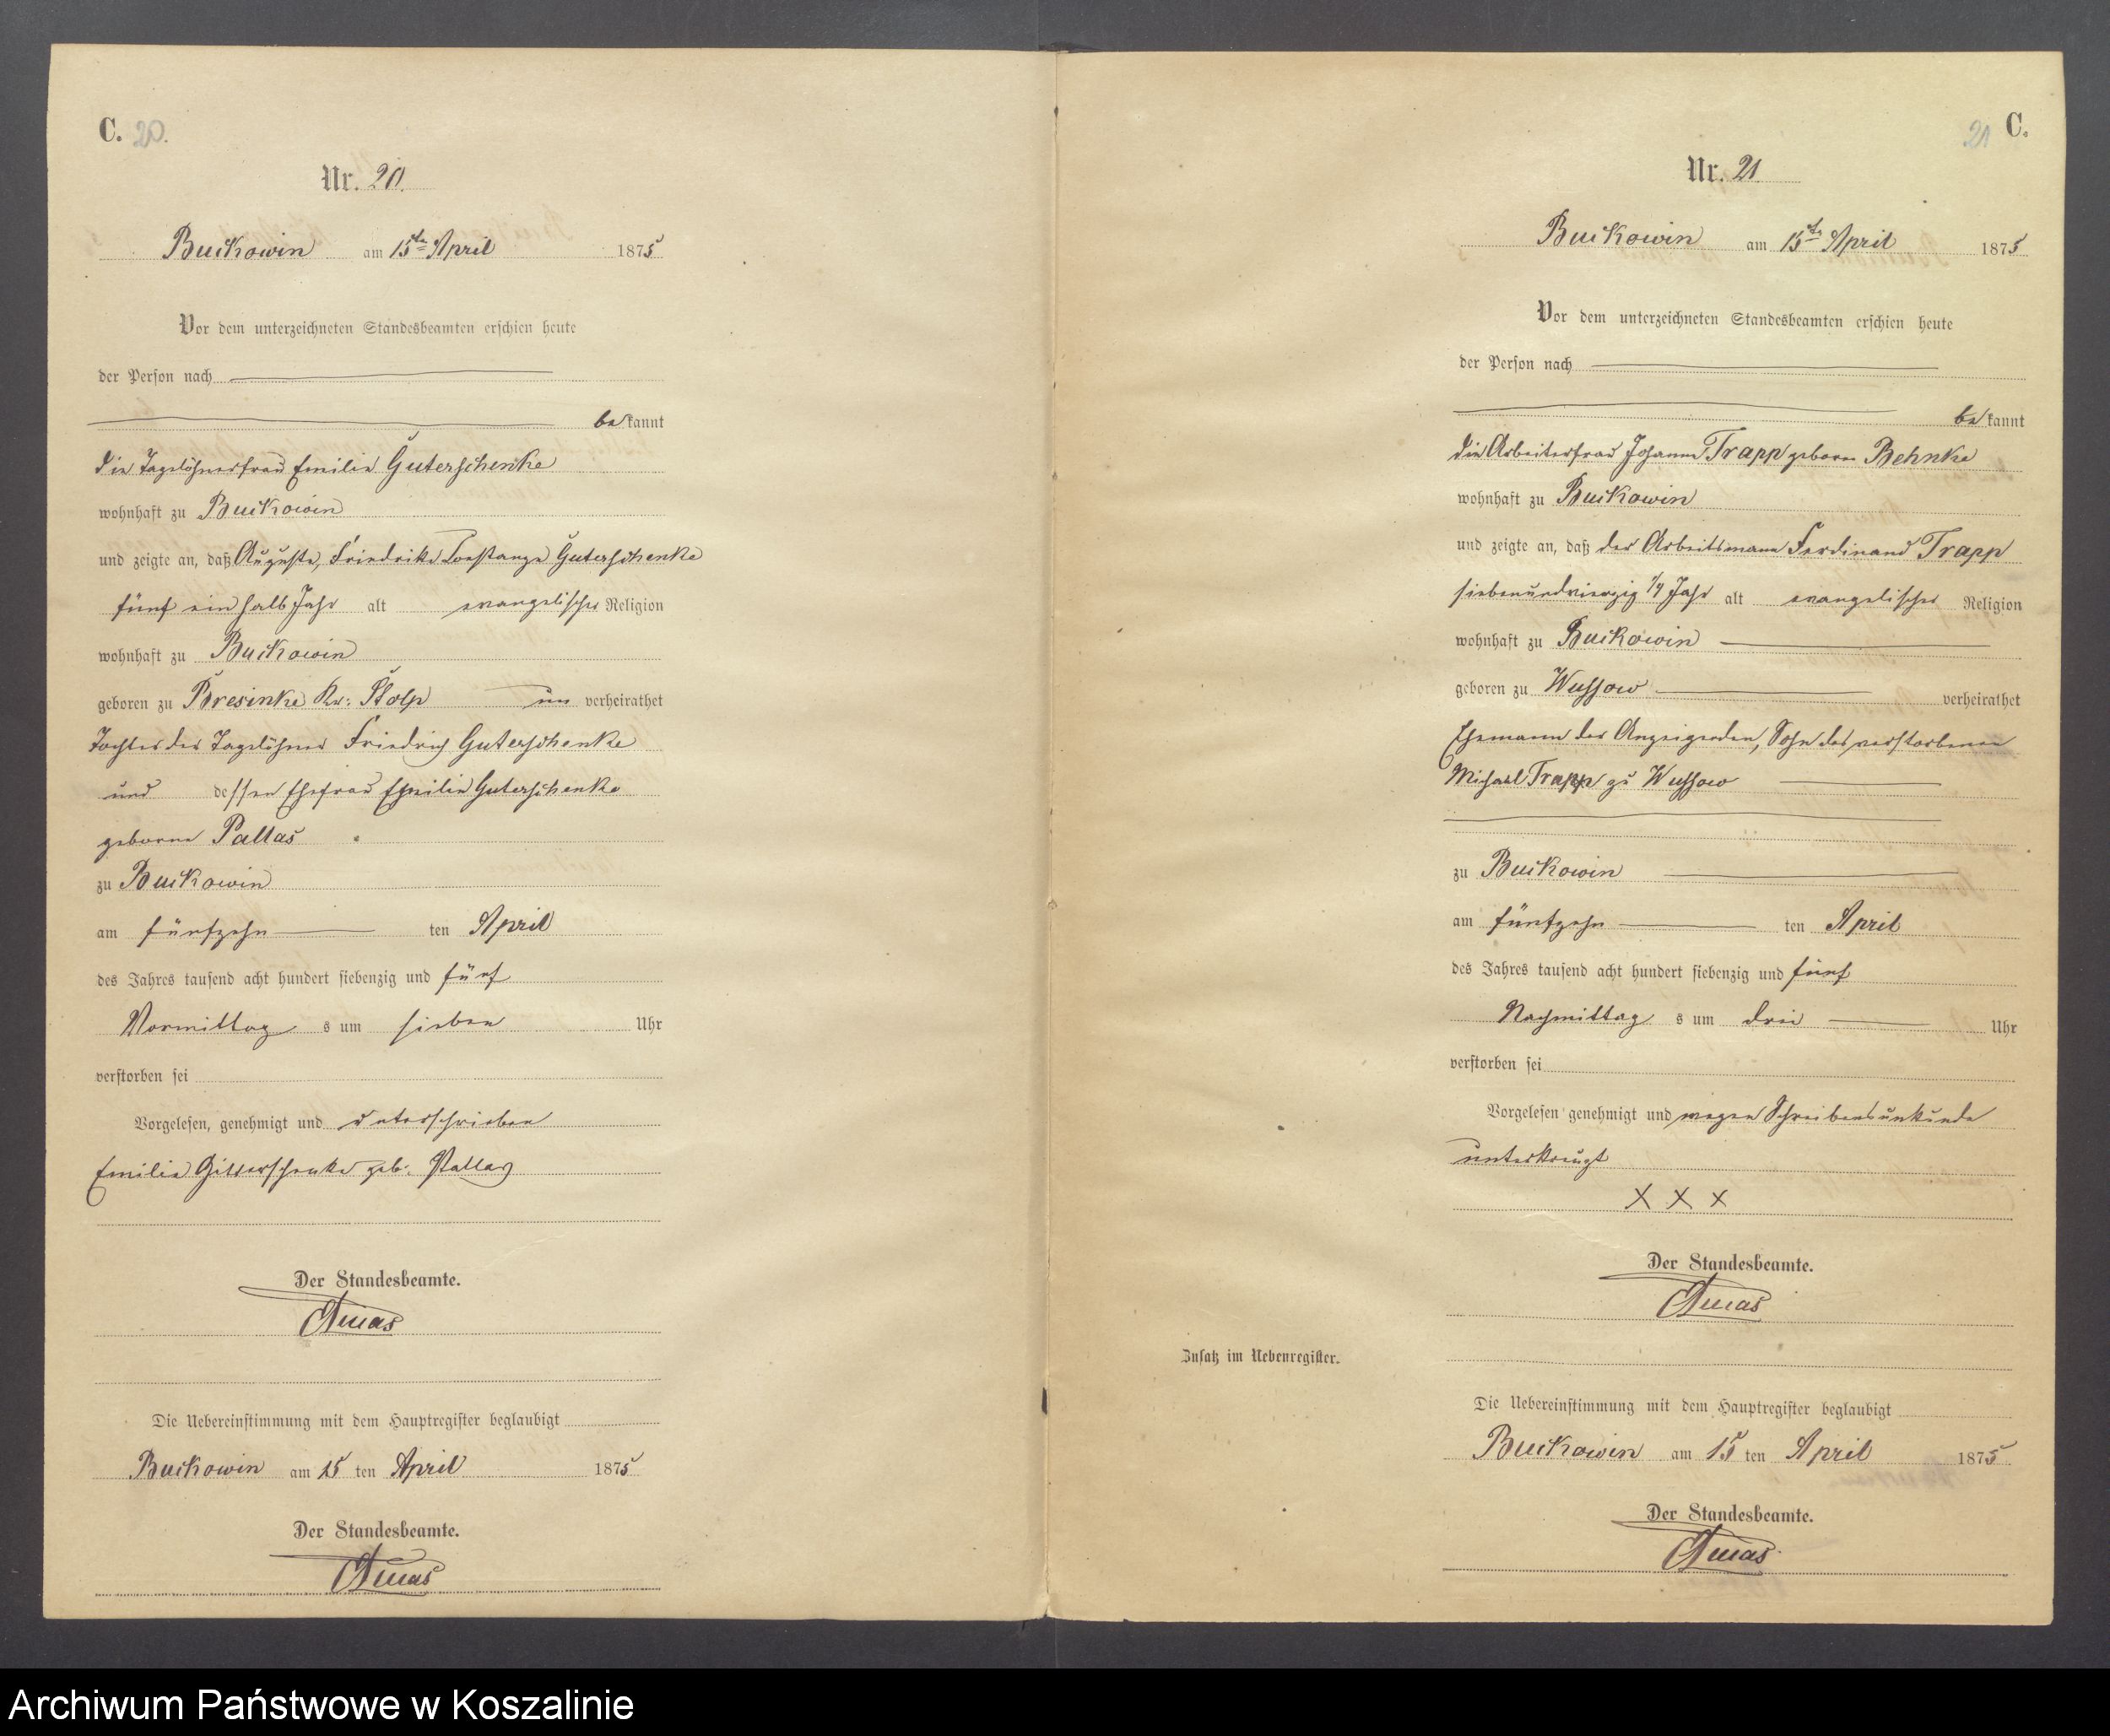 C. 20.
Nr. 20.
Buckowin am 15ten April 1875
Vor dem unterzeichneten Standesbeamten erschien heute
der Person nach
bekannt
die Tagelöhnerfrau Emilie Guterschenke
wohnhaft zu Buckowin
und zeigte an, daß Auguste, Friedrike Constanze Guterschenke
fünf ein halb Jahr alt evangelischer Religion
wohnhaft zu Buckowin
geboren zu Bresinke Kr: Stolp un verheirathet
Tochter des Tagelöhner Friedrich Guterschenke
und dessen Ehefrau Emilie Guterschenke
geborne Pallas
zu Buckowin
am fünfzehn ten April
des Jahres tausend acht hundert siebenzig und fünf
Vormittag s um sieben Uhr
verstorben sei
Vorgelesen, genehmigt und unterschrieben
Emilie Gitterschenke geb: Pallas
Der Standesbeamte.
Die Uebereinstimmung mit dem Hauptregister beglaubigt
Buckowin am 15 ten April 1875
Der Standesbeamte.
21 C.
Nr. 21.
Buckowin am 15ten April 1875
Vor dem unterzeichneten Standesbeamten erschien heute
der Person nach
bekannt
die Arbeiterfrau Johanne Trapp geborne Behnke
wohnhaft zu Buckowin
und zeigte an, daß der Arbeitsmann Ferdinand Trapp
siebenundvierzig 1/4 Jahr alt evangelischer Religion
wohnhaft zu Buckowin
geboren zu Wussow verheirathet
Ehemann der Anzeigenden, Sohn des verstorbenen
Michael Trapp zu Wussow
zu Buckowin
am fünfzehn ten April
des Jahres tausend acht hundert siebenzig und fünf
Nachmittag s um drei Uhr
verstorben sei
Vorgelesen genehmigt und wegen Schreibensunkunde
unterkreuzt
X X X
Der Standesbeamte.
Zusatz im Nebenregister.
Die Uebereinstimmung mit dem Hauptregister beglaubigt
Buckowin am 15 ten April 1875
Der Standesbeamte.
Archiwum Państwowe w Koszalinie